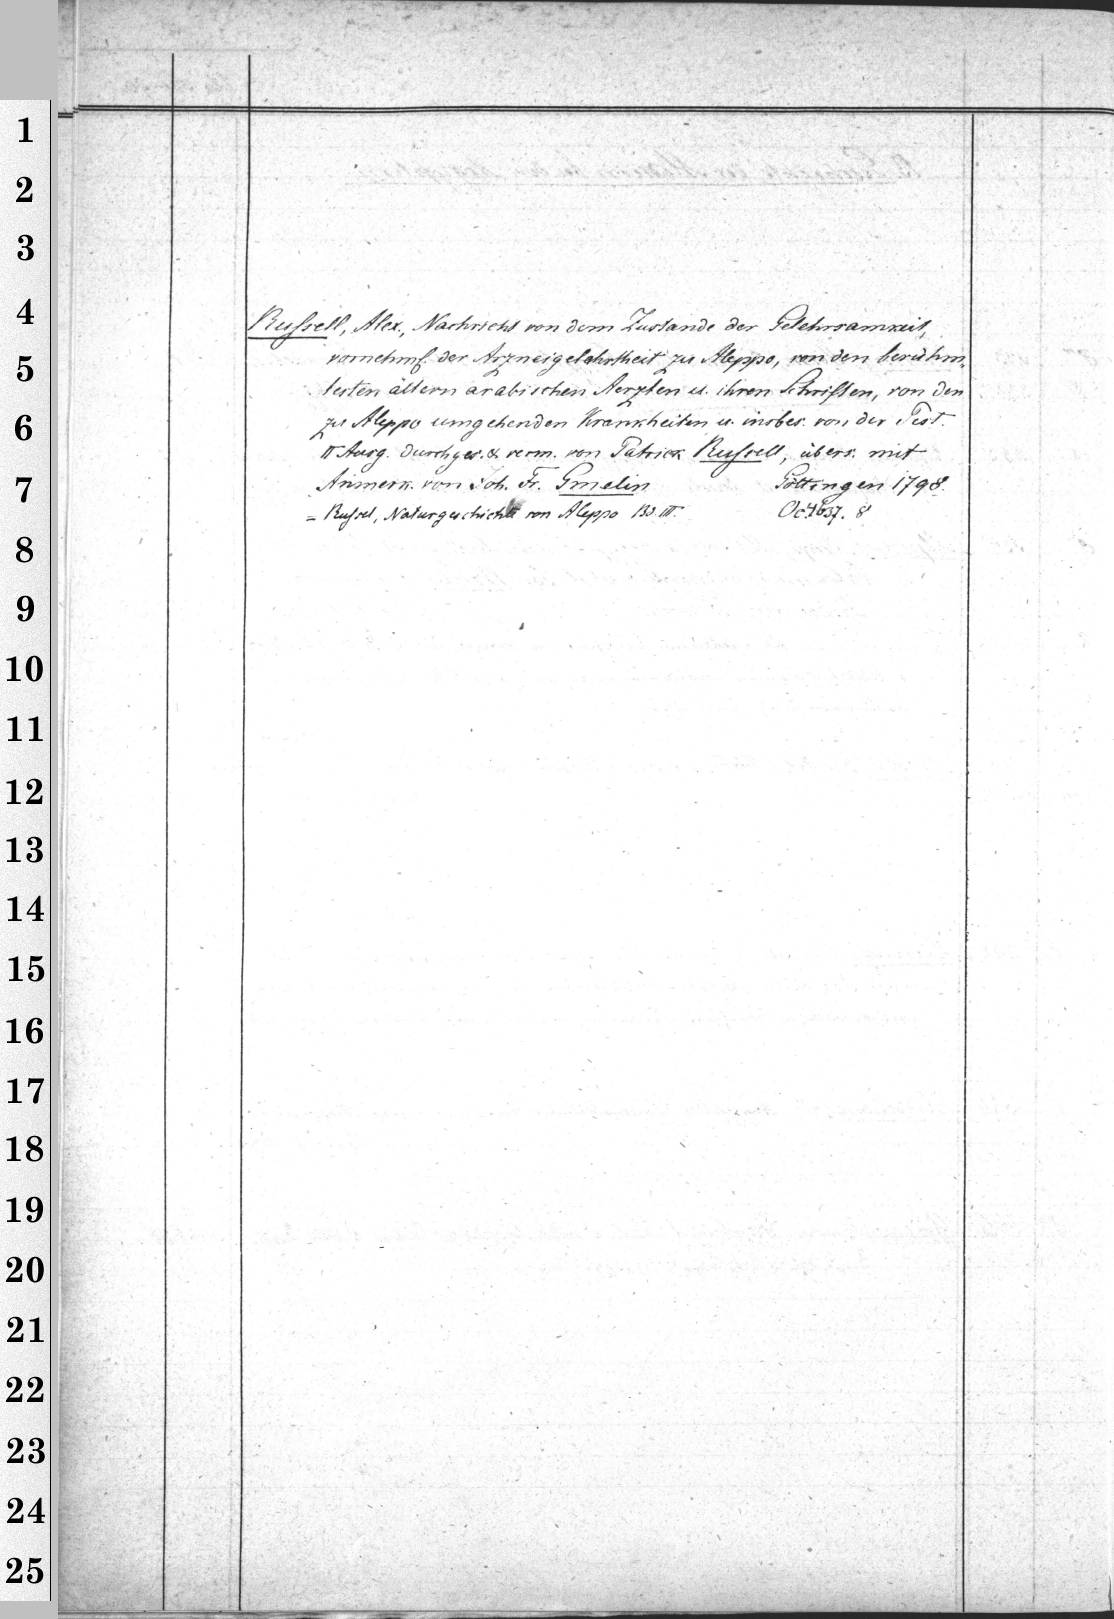 1
2
3
4
5
6
7
8
9
10
11
12
13
14
15
16
17
18
19
20
21
22
23
24
25
Russell, Alex., Nachricht von dem Zustande der Gelehrsamkeit,
vornehml. der Arzneigelahrtheit zu Aleppo, von den berühm-
testen ältern arabischen Aerzten u. ihren Schriften, von den
zu Aleppo umgehenden Krankheiten u. insbes. von der Pest.
II Ausg. durchges. & verm. von Patrick Russell, übers. mit
Anmerk. von Joh. Fr. Gmelin Göttingen 1798.
= Russel, Naturgeschichte von Aleppo Bd. III. Oc 4637. 8